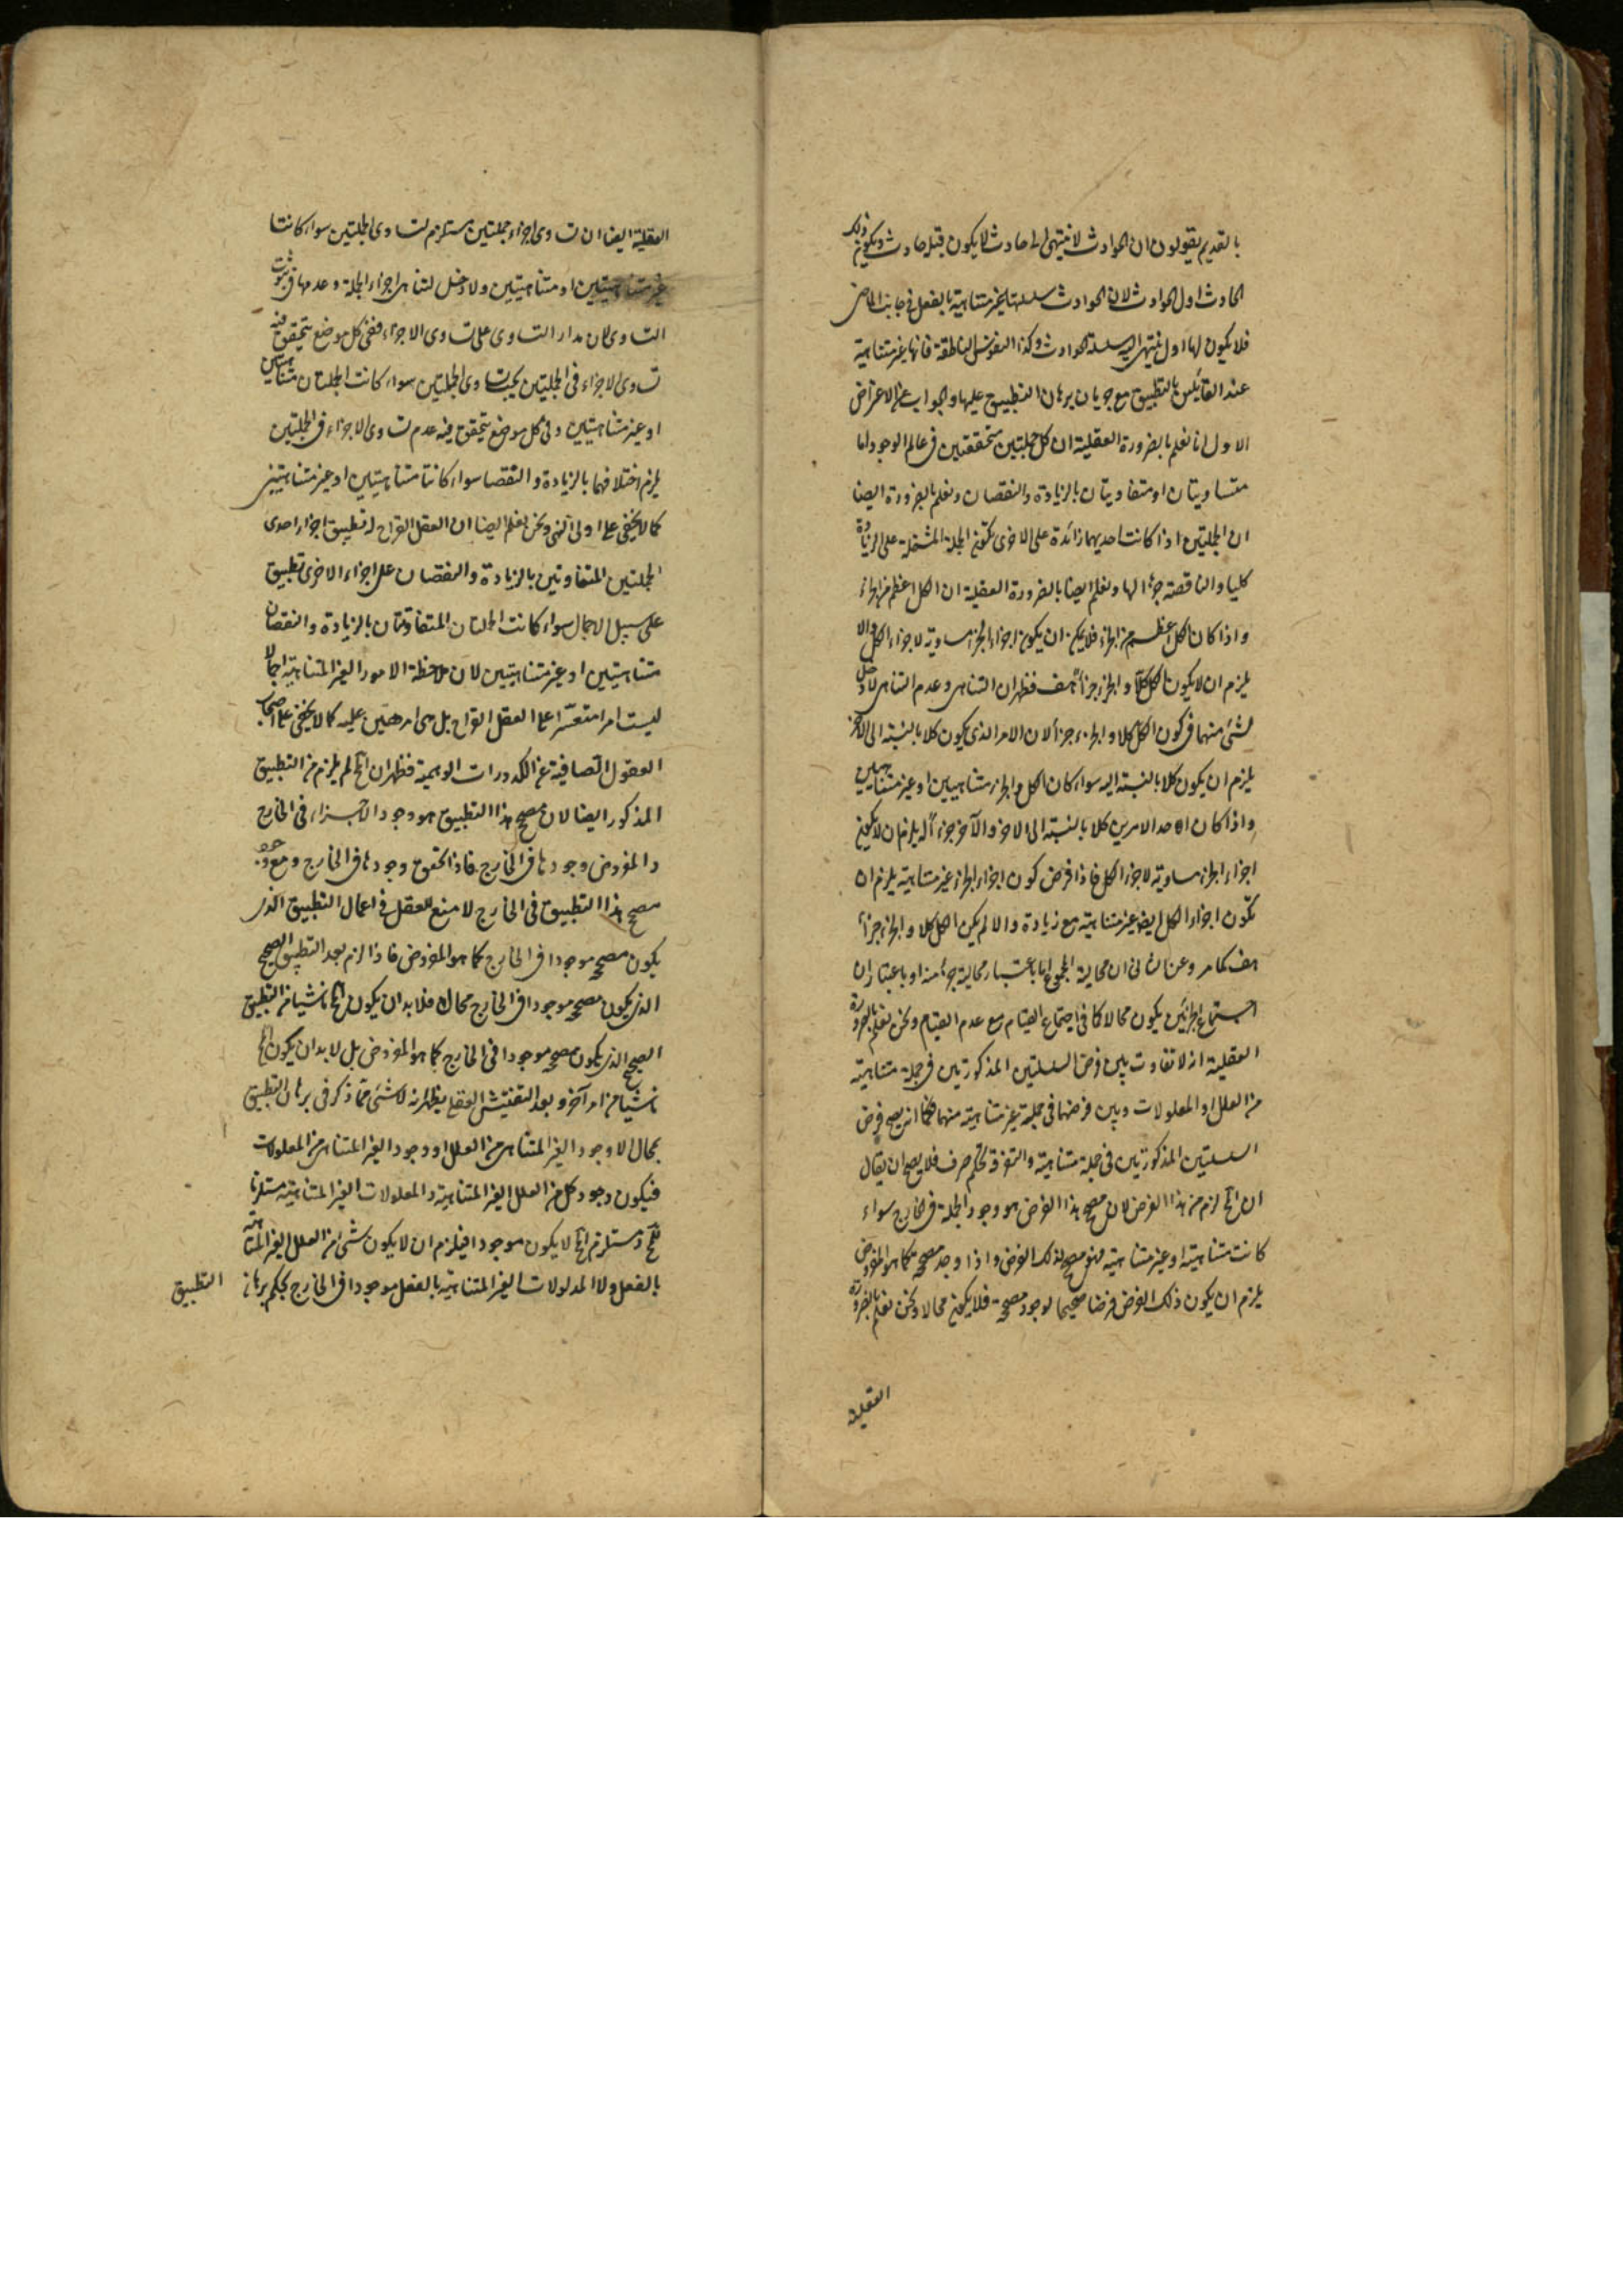 بالقديم يقولون ان الحوادث لا ينتهى الى حادث لا يكون قبله حادث ويكون ذلك
الحادث اول الحوادث لان الحوادث سلسلتها غير متناهية بالفعل فى جانب الماضى
فلا يكون لها اول ينتهى اليه سلسلة الحوادث وكذا النفوس الناطقة فانها غير متناهية
عند القائلين بالتطبيق مع جريان برهان التطبيق عليها والجواب عن الاعتراض
الاول انا نعلم بالضرورة العقلية ان كل جملتين متحققتين فى عالم الوجود اما
متساويتان او متفاوتتان بالزيادة والنقصان ونعلم بالضرورة ايضا
ان الجملتين اذا كانت احديهما زائدة على الاخرى تكون الجملة المشتملة على الزيادة
كليا والناقصة جزءا لها ونعلم ايضا بالضرورة العقلية ان الكل اعظم من الجزء
واذا كان الكل اعظم من الجزء فلا يمكن ان يكون اجزاء الجزء مساوية لاجزاء الكل والا
يلزم ان لا يكون الكل كلا والجزء جزءا هف فظهر ان التناهى وعدم التناهى لا دخل
لشئ منهما فى كون الكل كلا والجزء جزءا لان الامر الذى يكون كلا بالنسبة الى الاخر
يلزم ان يكون كلا بالنسبة اليه سواء كان الكل والجزء متناهيين او غير متناهيين
واذا كان احد الامرين كلا بالنسبة الى الاخر والآخر جزءا له يلزم ان لا يكون
اجزاء الجزء مساوية لاجزاء الكل فاذا فرض كون اجزاء الجزء غير متناهية يلزم ان
تكون اجزاء الكل ايضا غير متناهية مع زيادة والا لم يكن الكل كلا والجزء جزءا
هف كما مر وعن الثانى ان محالية المجموع اما باعتبار محالية جزء منه او باعتبار ان
اجتماع الجزئين يكون محالا كما فى اجتماع القيام مع عدم القيام ونحن نعلم بالضرورة
العقلية انه لا تفاوت بين فرض السلسلتين المذكورتين فى جملة متناهية
من العلل او المعلولات وبين فرضهما فى جملة غير متناهية منهما فكما انه يصح فرض
السلسلتين المذكورتين فى جملة متناهية والتفرقة تحكم صرف فلا يصح ان يقال
ان المح لزم من هذا الفرض لان مصحح هذا الفرض هو وجود الجملة فى الخارج سواء
كانت متناهية او غير متناهية فهو مصحح لذلك الفرض واذا وجد مصححه كما هو المفروض
يلزم ان يكون ذلك الفرض فرضا صحيحا لوجود مصححه فلا يكون محالا ونحن نعلم بالضرورة
العقلية
العقلية ايضا ان تساوى اجزاء جملتين مستلزم لتساوى الجملتين سواء كانتا
غير متناهيتين او متناهيتين ولا دخل لتناهى اجزاء الجملة وعدمها فى ثبوت
التساوى لان مدار التساوى على تساوى الاجزاء ففى كل موضع يتحقق فيه
تساوى الاجزاء فى الجملتين يجب تساوى الجملتين سواء كانت الجملتان متناهيتين
او غير متناهيتين وفى كل موضع يتحقق فيه عدم تساوى الاجزاء فى الجملتين
يلزم اختلافهما بالزيادة والنقصا سواء كانتا متناهيتين او غير متناهيتين
كما لا يخفى على اولى النهى ونحن نعلم ايضا ان العقل القراح له تطبيق اجزاء احدى
الجملتين المتفاوتين بالزيادة والنقصان على اجزاء الاخرى تطبيق
على سبيل الاجمال سواء كانت الجملتان المتفاوتتان بالزيادة والنقصان
متناهيتين او غير متناهيتين لان ملاحظة الامور الغير المتناهية اجمالا
ليست امرا متعسرا على العقل القراح بل هى امر هين عليه كما لا يخفى على اصحاب
العقول الصافية عن الكدورات الوهمية فظهر ان المح لم يلزم من التطبيق
المذكور ايضا لان مصحح هذا التطبيق هو وجود الاجزاء فى الخارج
والمفروض وجودها فى الخارج فاذا تحقق وجودها فى الخارج ومع وجود
مصحح هذا التطبيق فى الخارج لا منع للعقل فى اعمال التطبيق الذى
يكون مصححه موجودا فى الخارج كما هو المفروض فاذا لزم بعد التطبيق الصحيح
الذى يكون مصححه موجودا فى الخارج محال فلا بد ان يكون المح ناشيا من التطبيق
الصحيح الذى يكون مصححه موجودا فى الخارج كما هو المفروض بل لا بد ان يكون المح
ناشيا من امر آخر وبعد التفتيش العقلى يظهر انه لا شئ مما ذكر فى برهان التطبيق
بمحال الا وجود الغير المتناهى من العلل او وجود الغير المتناهى من المعلولات
فيكون وجود كل من العلل الغير المتناهية والمعلولات الغير المتناهية مستلزما
للمح ومستلزم المح لا يكون موجودا فيلزم ان لا يكون شئ من العلل الغير المتناهية
بالفعل ولا المدلولات الغير المتناهية بالفعل موجودا فى الخارج بحكم برهان
التطبيق